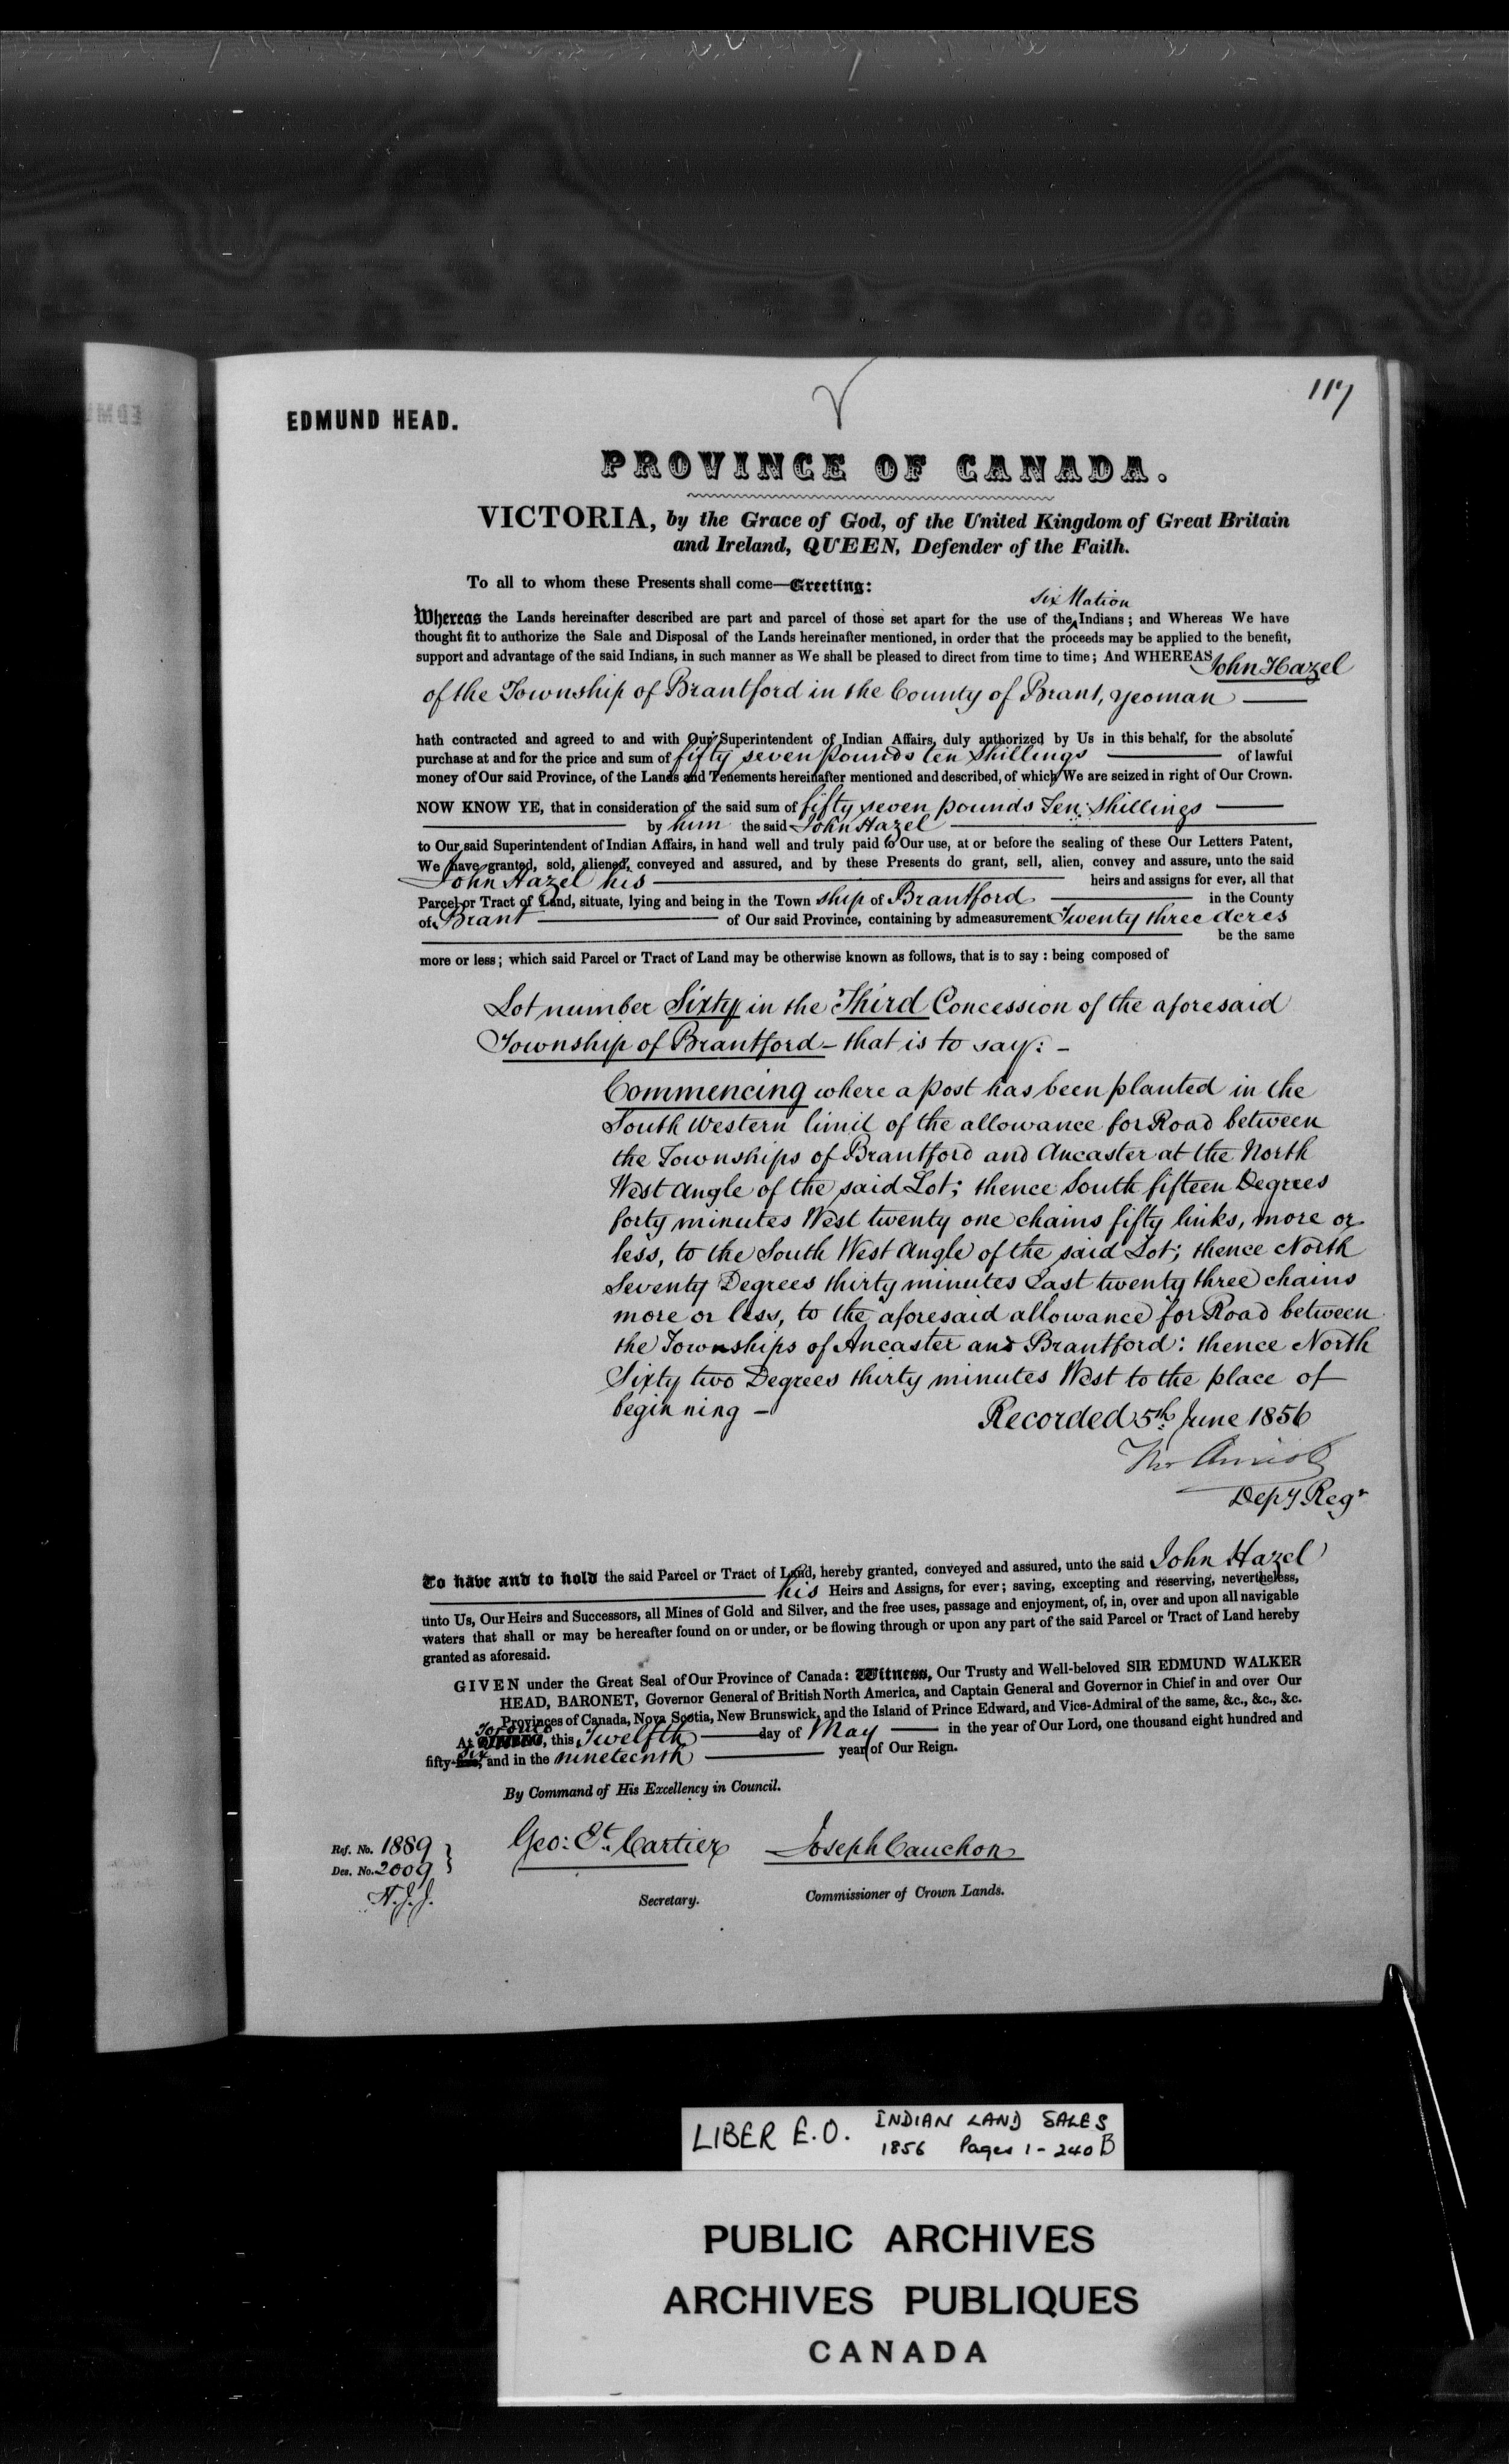 117
EDMUND HEAD.
PROVINCE OF CANADA.
VICTORIA, by the Grace of God, of the United Kingdom of Great Britain
and Ireland, QUEEN, Defender of the Faith.
To all to whom these Presents shall come—Greeting:
Six Nation
Whereas the Lands hereinafter described are part and parcel of those set apart for the use of the ^ Indians; and Whereas We have
thought fit to authorize the Sale and Disposal of the Lands hereinafter mentioned, in order that the proceeds may be applied to the benefit,
support and advantage of the said Indians, in such manner as We shall be pleased to direct from time to time; And WHEREAS John Hazel
of the Township of Brantford in the County of Brant, yeoman
hath contracted and agreed to and with Our Superintendent of Indian Affairs, duly authorized by Us in this behalf, for the absolute
purchase at and for the price and sum of fifty seven pounds ten Shillings of lawful
money of Our said Province, of the Lands and Tenements hereinafter mentioned and described, of which We are seized in right of Our Crown.
NOW KNOW YE, that in consideration of the said sum of fifty seven pounds Ten Shillings
by him the said John Hazel
to Our said Superintendent of Indian Affairs, in hand well and truly paid to Our use, at or before the sealing of these Our Letters Patent,
We have granted, sold, aliened, conveyed and assured, and by these Presents do grant, sell, alien, convey and assure, unto the said
John Hazel his heirs and assigns for ever, all that
Parcel or Tract of Land, situate, lying and being in the Town ship of Brantford in the County
of Brant of Our said Province, containing by admeasurement Twenty three acres
be the same
more or less; which said Parcel or Tract of Land may be otherwise known as follows, that is to say: being composed of
Lot number Sixty in the Third Concession of the aforesaid
Township of Brantford - that is to say: -
Commencing where a post has been planted in the
South Western limit of the allowance for Road between
the Townships of Brantford and Ancaster at the North
West Angle of the said Lot; thence South fifteen Degrees
forty minutes West twenty one chains fifty links, more or
less, to the South West Angle of the said Lot; thence North
Seventy Degrees thirty minutes East twenty three chains
more or less, to the aforesaid allowance for Road between
the Townships of Ancaster and Brantford: thence North
Sixty two Degrees thirty minutes West to the place of
beginning -
Recorded 5th June 1856
Depy Regr
To have and to hold the said Parcel or Tract of Land, hereby granted, conveyed and assured, unto the said John Hazel
his Heirs and Assigns, for ever; saving, excepting and reserving, nevertheless,
unto Us, Our Heirs and Successors, all Mines of Gold and Silver, and the free uses, passage and enjoyment, of, in, over and upon all navigable
waters that shall or may be hereafter found on or under, or be flowing through or upon any part of the said Parcel or Tract of Land hereby
granted as aforesaid.
GIVEN under the Great Seal of Our Province of Canada: Witness, Our Trusty and Well-beloved SIR EDMUND WALKER
HEAD, BARONET, Governor General of British North America, and Captain General and Governor in Chief in and over Our
Provinces of Canada, Nova Scotia, New Brunswick, and the Island of Prince Edward, and Vice-Admiral of the same, &c., &c., &c.
At Toronto, this Twelfth day of May in the year of Our Lord, one thousand eight hundred and
fifty-six, and in the nineteenth year of Our Reign.
By Command of His Excellency in Council.
Ref. No. 1889
Des. No. 2009
Geo: Et. Cartier
Joseph Cauchon
Secretary.
Commissioner of Crown Lands.
LIBER E.O. INDIAN LAND SALES
1856 Pages 1-240B
PUBLIC ARCHIVES
ARCHIVES PUBLIQUES
CANADA